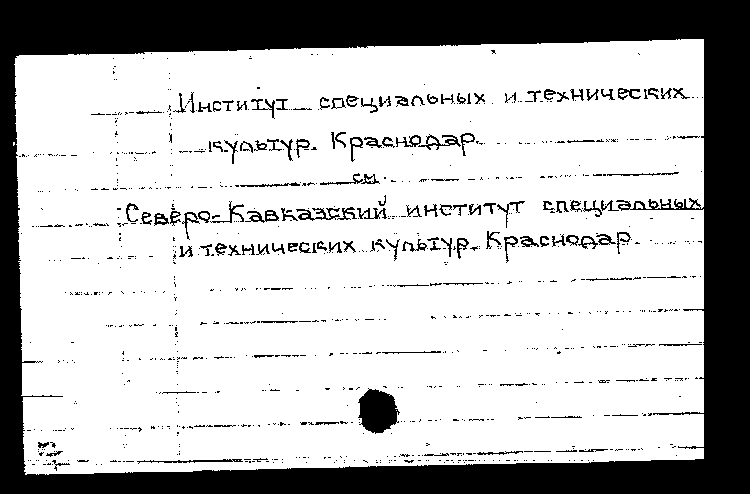 Институт специальных и технических
культур. Краснодар.
см.
Северо-Кавказский институт специальных
и технических культур. Краснодар.